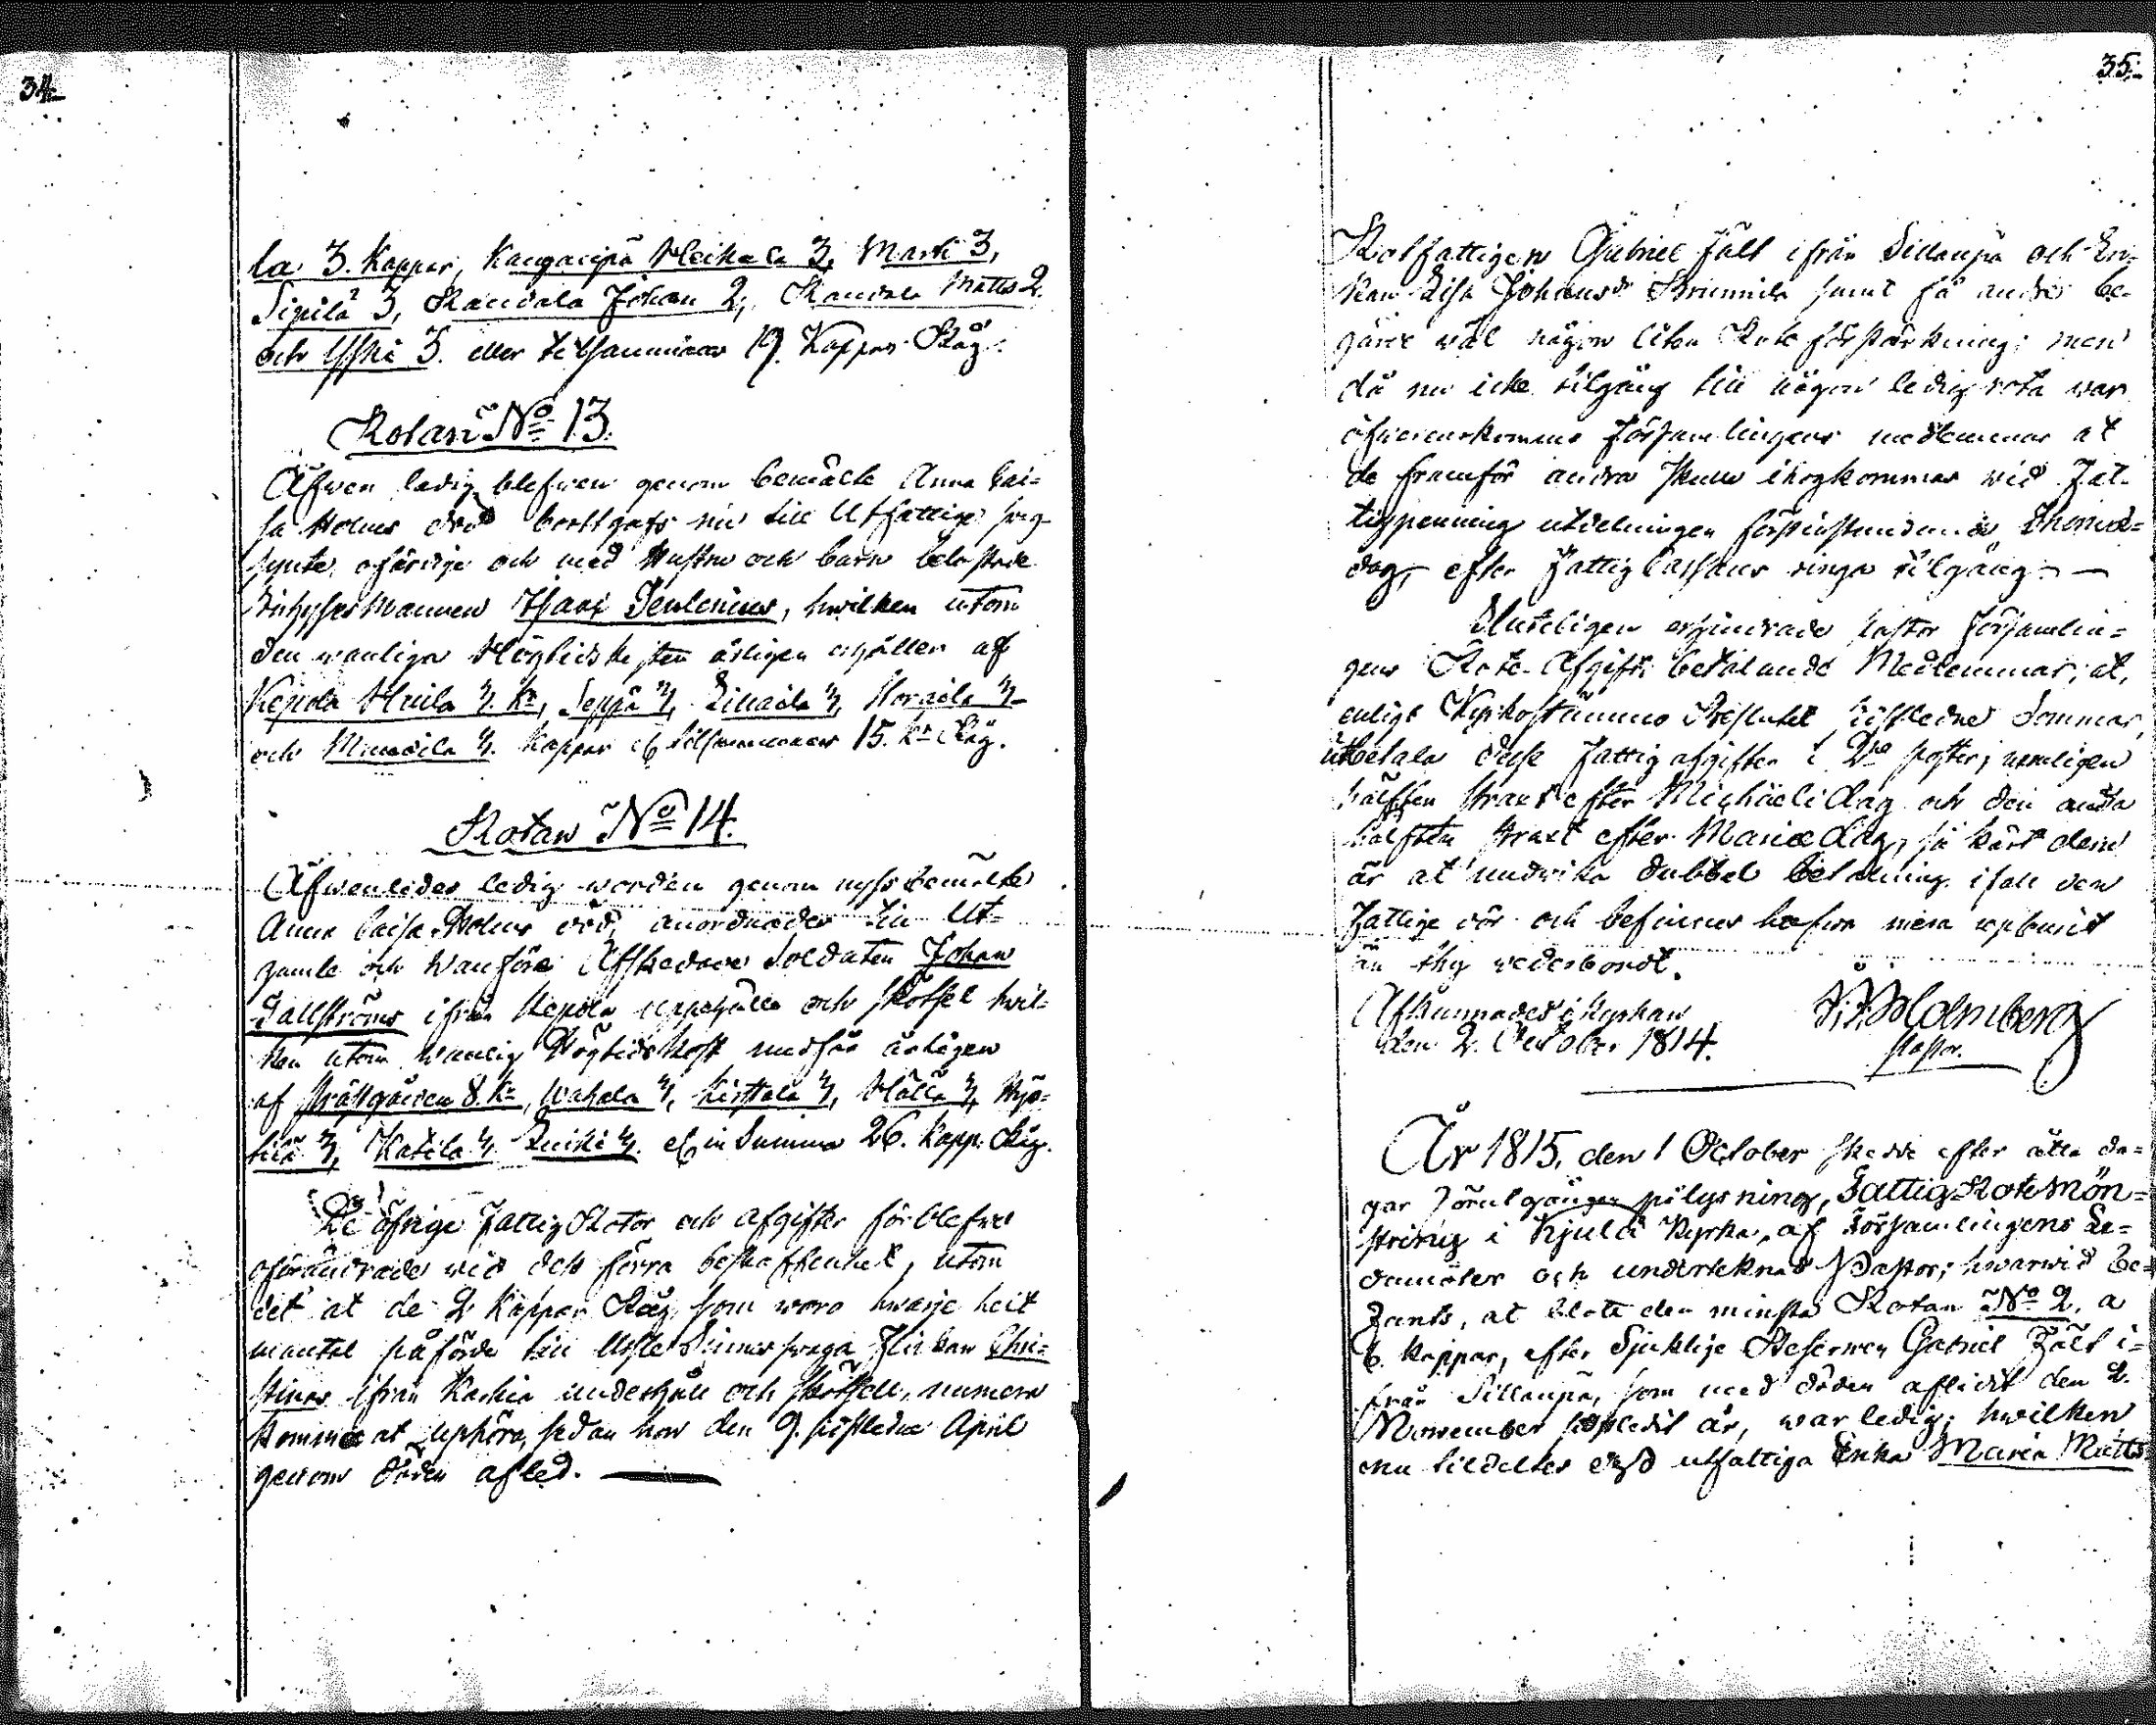 34.
la 3. Kappar, Kangaispä Heikala 3, Marti 3,
Sipilä 3, Kandola Johan 2, Kandola Matts 2.
och Yski 3. eller tilsammans 19. Kappar Råg.
Rotan No 13.
Äfwen ledig blefwen genom bemälte Anna Cai-
sa Holms död bortgafs nu till Utfattige swag-
synte, ofärdige och med Hustru och barn belastade
Inhyses Mannen Isaac Senlenius, hwilken utom
den wanliga Högtids kosten årligen erhåller af
Kepola Huila 3. Kr, Seppä 3, Simola 3, 3
och 3. Kappar eller tilsammans 15. Kr Råg.
Rotan No 14.
Äfwenledes ledig worden genom nyss bemälte
Anna Caisa Holms död, anordnades till Ut-
gamle och wanföre Afskedade Soldaten Johan
Dallströms ifrån Kepola uppehälle och skötsel hwil-
ken utom wanlig Högtids kost undfår årligen
af Prästgården 8. Kr, Wahala 3, Kirstala 3, Hälla 3, Yli-
3, Katila 3. 3. eller in Summa 26. Kapp. Råg.
De öfrige Fattig Rotor och afgifter förblefwo
oförändrade wid dess förra beskaffenhet, utom
det at de 2 Kappar Råg som woro hwarje helt
mantal påförda till Usle Sinnes swaga Flickan Chri-
stinas ifrån Karhia underhåll och skötsell, numera
komma at uphöra, sedan hon den 9. sistledne April
genom döden afled.
35.
Rotfattigen Gabriel Fält ifrån Sillanpä och En-
kan Lisa Johansdr samt få andre be-
gärte wäl någon liten Rote förstärkning; men
då nu icke tilgång till någon ledig rota war
öfwerenskommo Församlingens medlemmar at
de framför andra skulle ihogkommas wid Fat-
tigpenning utdelningen förstinstundande Thomæ-
dag, efter Fattig Cassans ringa tilgång.
Sluteligen erhindrade Pastor Församlin-
gens Rote-Afgift betalande Medlemmar, at,
enligt Kyrkostämmo Beslutet sistledne Sommar,
utbetala desse Fattig afgifter i 2ne poster; nemligen
hälften straxt efter Michäeli dag och den andra
hälften straxt efter Mariæ dag, så kärt dem
är at undwika dubbel betalning ifall den
Fattige dör och befinnes hafwa mera upburit
än thy wederbordt.
Afkunnades i Kyrkan
den 2. October 1814.
Holmberg
Pastor.
År 1815, den 1 October skedde efter åtta da-
gar förutgången pålysning, Fattig-Rote Mön-
string i Kjulå Kyrka, af Församlingens Le-
damöter och undertecknad Pastor; hwarwid be-
fants, at blott den minsta Rotan No 2, a
6. Kappar, efter Sjuklige Reserwen Gabriel Fält i-
från Sillanpä, som med döden aflidit den 2.
November sistledit år, war ledig; hwilken
nu tildeltes utfattiga Enka Maria Matts